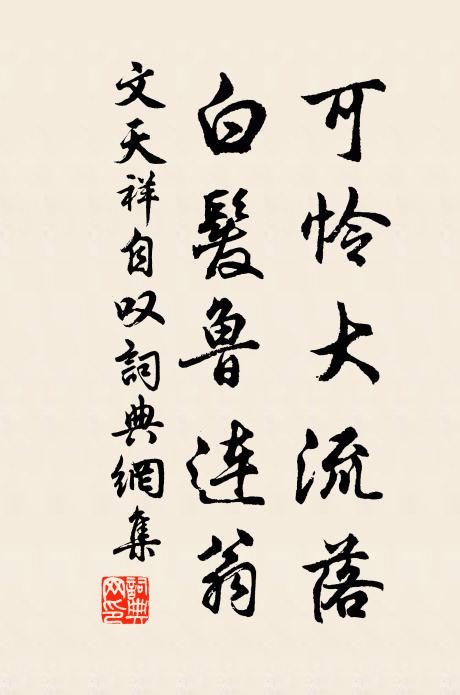 可怜大流落
白髮鲁連翁
文天祥自叹詞典網集
詞典網印